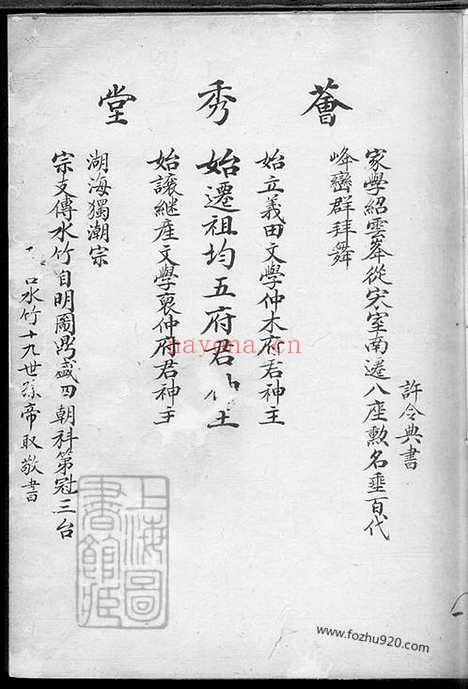 薈秀堂
許令典書
家學紹雲峯從宋室南遷八座勲名垂百代
峰巒群拜舞
始立義田文學仲木府君神主
始遷祖均五府君 主
始讓継産文學裒仲府君神主
湖海獨潮宗
宗支傳水竹自明圖 盛四朝科第冠三台
水竹十九世孫帝 敬書
上海圖書館藏
hayona.cn
www.fozhu920.com